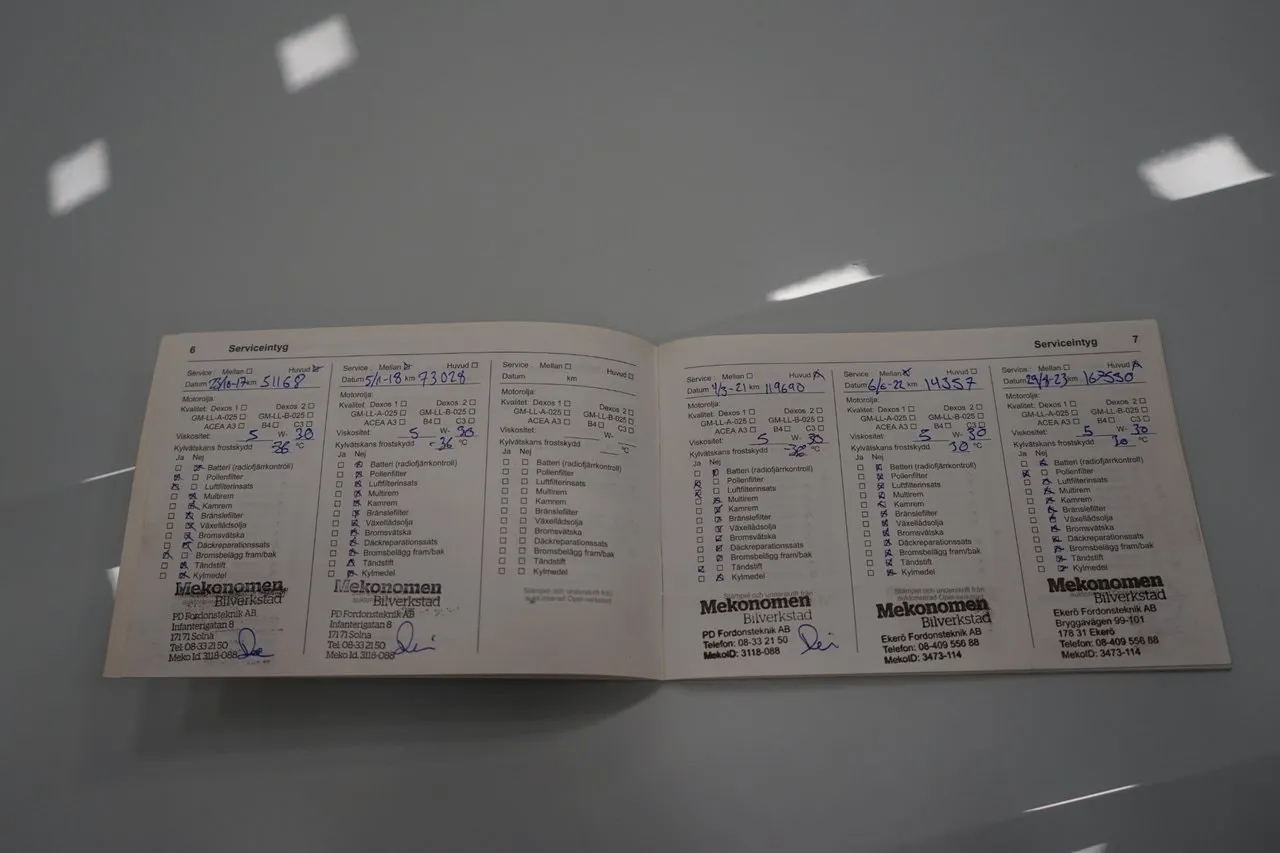 6 Serviceintyg
Service . Mellan Huvud
Datum 23/10-17 km 51168
Motorolja:
Kvalitet: Dexos 1 Dexos 2
GM-LL-A-025 GM-LL-B-025
ACEA A3 B4 C3
Viskositet: 5 W- 30
Kylvätskans frostskydd -36 °C
Ja Nej
Batteri (radiofjärrkontroll)
Pollenfilter
Luftfilterinsats
Multirem
Kamrem
Bränslefilter
Växellådsolja
Bromsvätska
Däckreparationssats
Bromsbelägg fram/bak
Tändstift
Kylmedel
Mekonomen
Bilverkstad
PD Fordonsteknik AB
Infanterigatan 8
171 71 Solna
Tel: 08-33 21 50
Meko Id. 3118-088
Service . Mellan Huvud
Datum 5/1-18 km 73028
Motorolja:
Kvalitet: Dexos 1 Dexos 2
GM-LL-A-025 GM-LL-B-025
ACEA A3 B4 C3
Viskositet: 5 W- 30
Kylvätskans frostskydd -36 °C
Ja Nej
Batteri (radiofjärrkontroll)
Pollenfilter
Luftfilterinsats
Multirem
Kamrem
Bränslefilter
Växellådsolja
Bromsvätska
Däckreparationssats
Bromsbelägg fram/bak
Tändstift
Kylmedel
Mekonomen
Bilverkstad
PD Fordonsteknik AB
Infanterigatan 8
171 71 Solna
Tel: 08-33 21 50
Meko Id. 3118-088
Service . Mellan Huvud
Datum km
Motorolja:
Kvalitet: Dexos 1 Dexos 2
GM-LL-A-025 GM-LL-B-025
ACEA A3 B4 C3
Viskositet: W-
Kylvätskans frostskydd °C
Ja Nej
Batteri (radiofjärrkontroll)
Pollenfilter
Luftfilterinsats
Multirem
Kamrem
Bränslefilter
Växellådsolja
Bromsvätska
Däckreparationssats
Bromsbelägg fram/bak
Tändstift
Kylmedel
Stämpel och underskrift från
auktoriserad Opel-verkstad
Serviceintyg 7
Service . Mellan Huvud
Datum 4/3-21 km 119690
Motorolja:
Kvalitet: Dexos 1 Dexos 2
GM-LL-A-025 GM-LL-B-025
ACEA A3 B4 C3
Viskositet: 5 W- 30
Kylvätskans frostskydd °C
Ja Nej
Batteri (radiofjärrkontroll)
Pollenfilter
Luftfilterinsats
Multirem
Kamrem
Bränslefilter
Växellådsolja
Bromsvätska
Däckreparationssats
Bromsbelägg fram/bak
Tändstift
Kylmedel
Stämpel och underskrift från
Mekonomen
Bilverkstad
PD Fordonsteknik AB
Telefon: 08-33 21 50
MekoID: 3118-088
Service . Mellan Huvud
Datum 6/6-22 km 14357
Motorolja:
Kvalitet: Dexos 1 Dexos 2
GM-LL-A-025 GM-LL-B-025
ACEA A3 B4 C3
Viskositet: 5 W- 30
Kylvätskans frostskydd 30 °C
Ja Nej
Batteri (radiofjärrkontroll)
Pollenfilter
Luftfilterinsats
Multirem
Kamrem
Bränslefilter
Växellådsolja
Bromsvätska
Däckreparationssats
Bromsbelägg fram/bak
Tändstift
Kylmedel
Mekonomen
Bilverkstad
Ekerö Fordonsteknik AB
Telefon: 08-409 556 88
MekoID: 3473-114
Service . Mellan Huvud
Datum km
Motorolja:
Kvalitet: Dexos 1 Dexos 2
GM-LL-A-025 GM-LL-B-025
ACEA A3 B4 C3
Viskositet: 5 W- 30
Kylvätskans frostskydd 30 °C
Ja Nej
Batteri (radiofjärrkontroll)
Pollenfilter
Luftfilterinsats
Multirem
Kamrem
Bränslefilter
Växellådsolja
Bromsvätska
Däckreparationssats
Bromsbelägg fram/bak
Tändstift
Kylmedel
Mekonomen
Bilverkstad
Ekerö Fordonsteknik AB
Bryggavägen 99-101
178 31 Ekerö
Telefon: 08-409 556 88
MekoID: 3473-114